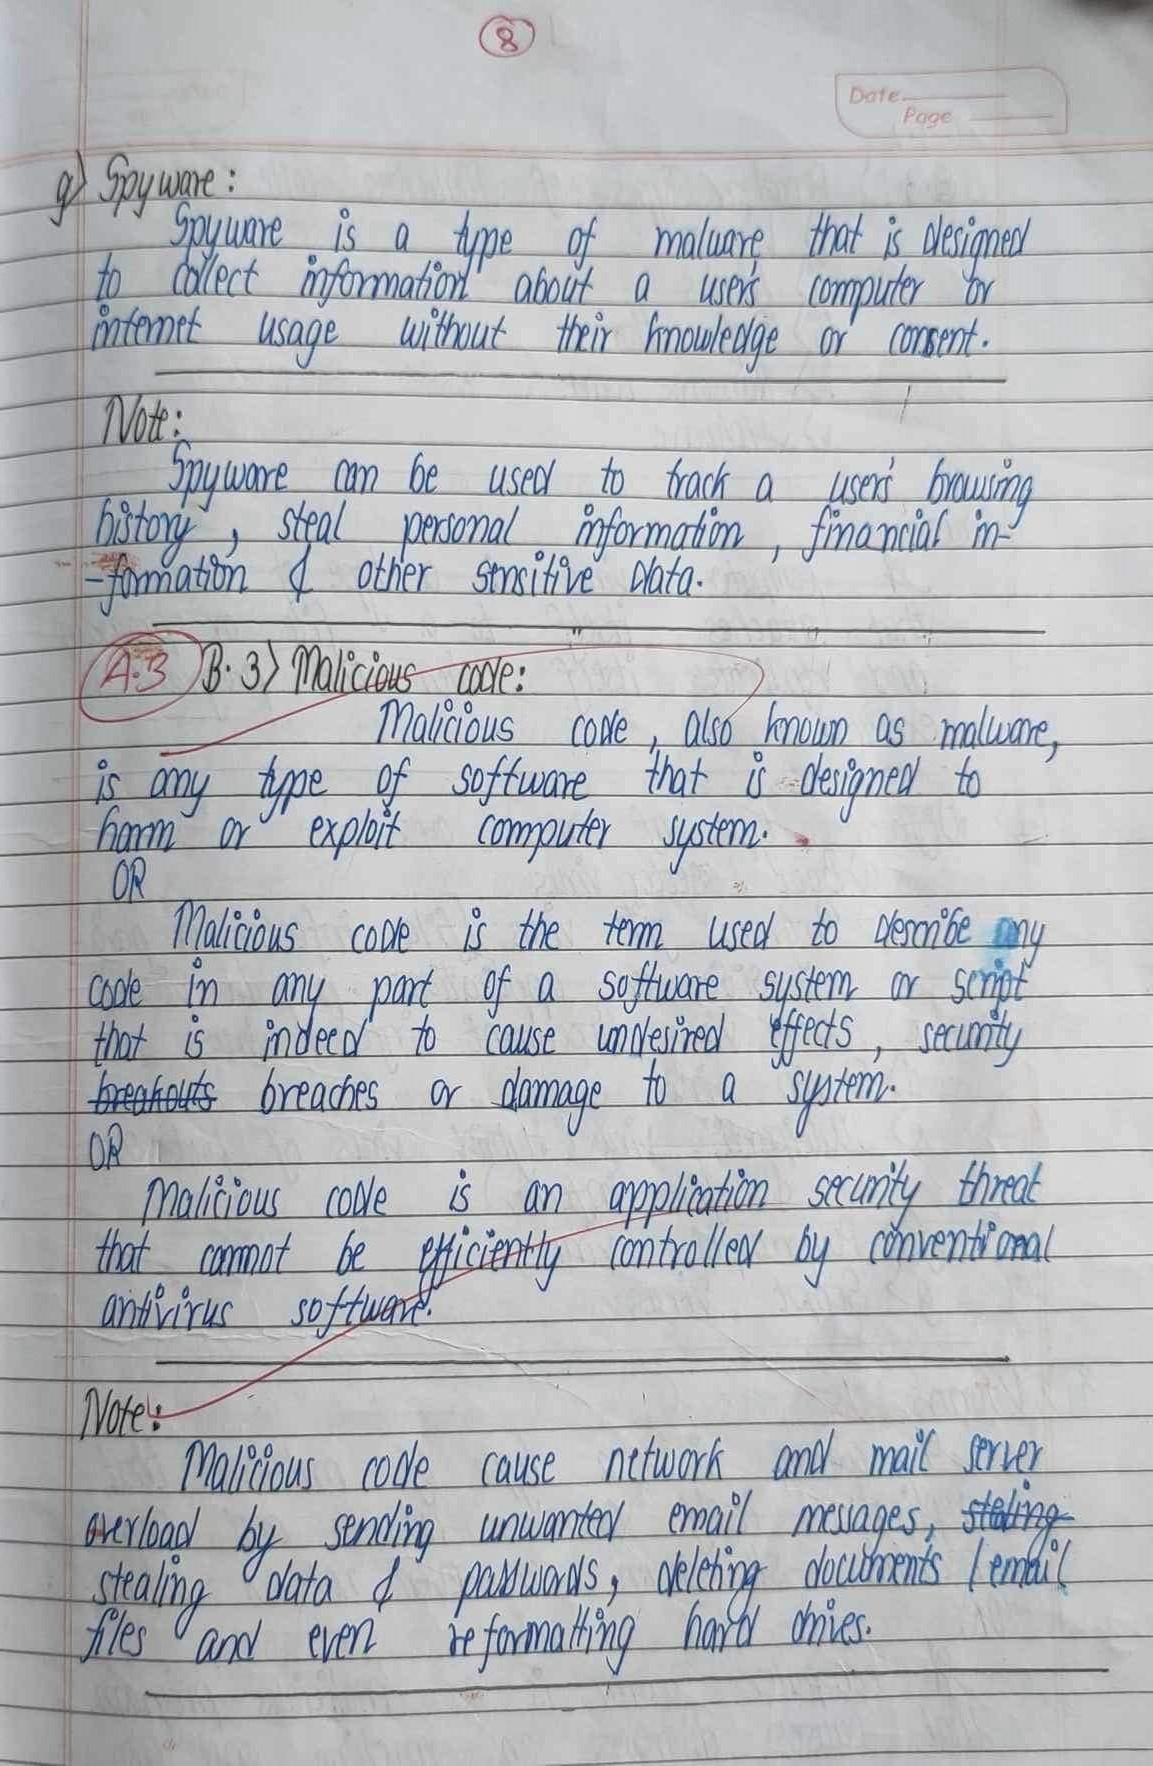 8
Date
Page
g) Spyware:
Spyware is a type of malware that is designed
to collect information about a user's computer or
internet usage without their knowledge or consent.
Note:
Spyware can be used to track a user's browsing
history, steal personal information, financial in-
-formation & other sensitive data.
A.3 B.3) Malicious code:
Malicious code, also known as malware,
is any type of software that is designed to
harm or exploit computer system.
OR
Malicious code is the term used to describe any
code in any part of a software system or script
that is indeed to cause undesired effects, security
breakouts breaches or damage to a system.
OR
Malicious code is an application security threat
that cannot be efficiently controlled by conventional
antivirus software.
Note:
Malicious code cause network and mail server
overload by sending unwanted email messages, steling
stealing data & passwords, deleting documents / email
files and even reformatting hard drives.